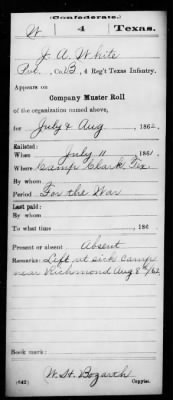 (Confederate.)
W 4 Texas.
J. A. White
Pvt., Co. B, 4 Reg't Texas Infantry.
Appears on
Company Muster Roll
of the organization named above,
for July & Aug, 1862.
Enlisted:
When July 11, 1861.
Where Camp Clark, Tex
By whom
Period For the War
Last paid:
By whom
To what time , 186 .
Present or absent Absent
Remarks: Left at sick camp
near Richmond Aug 8"/62
Book mark:
W. H. Bozarth
(642) Copyist.